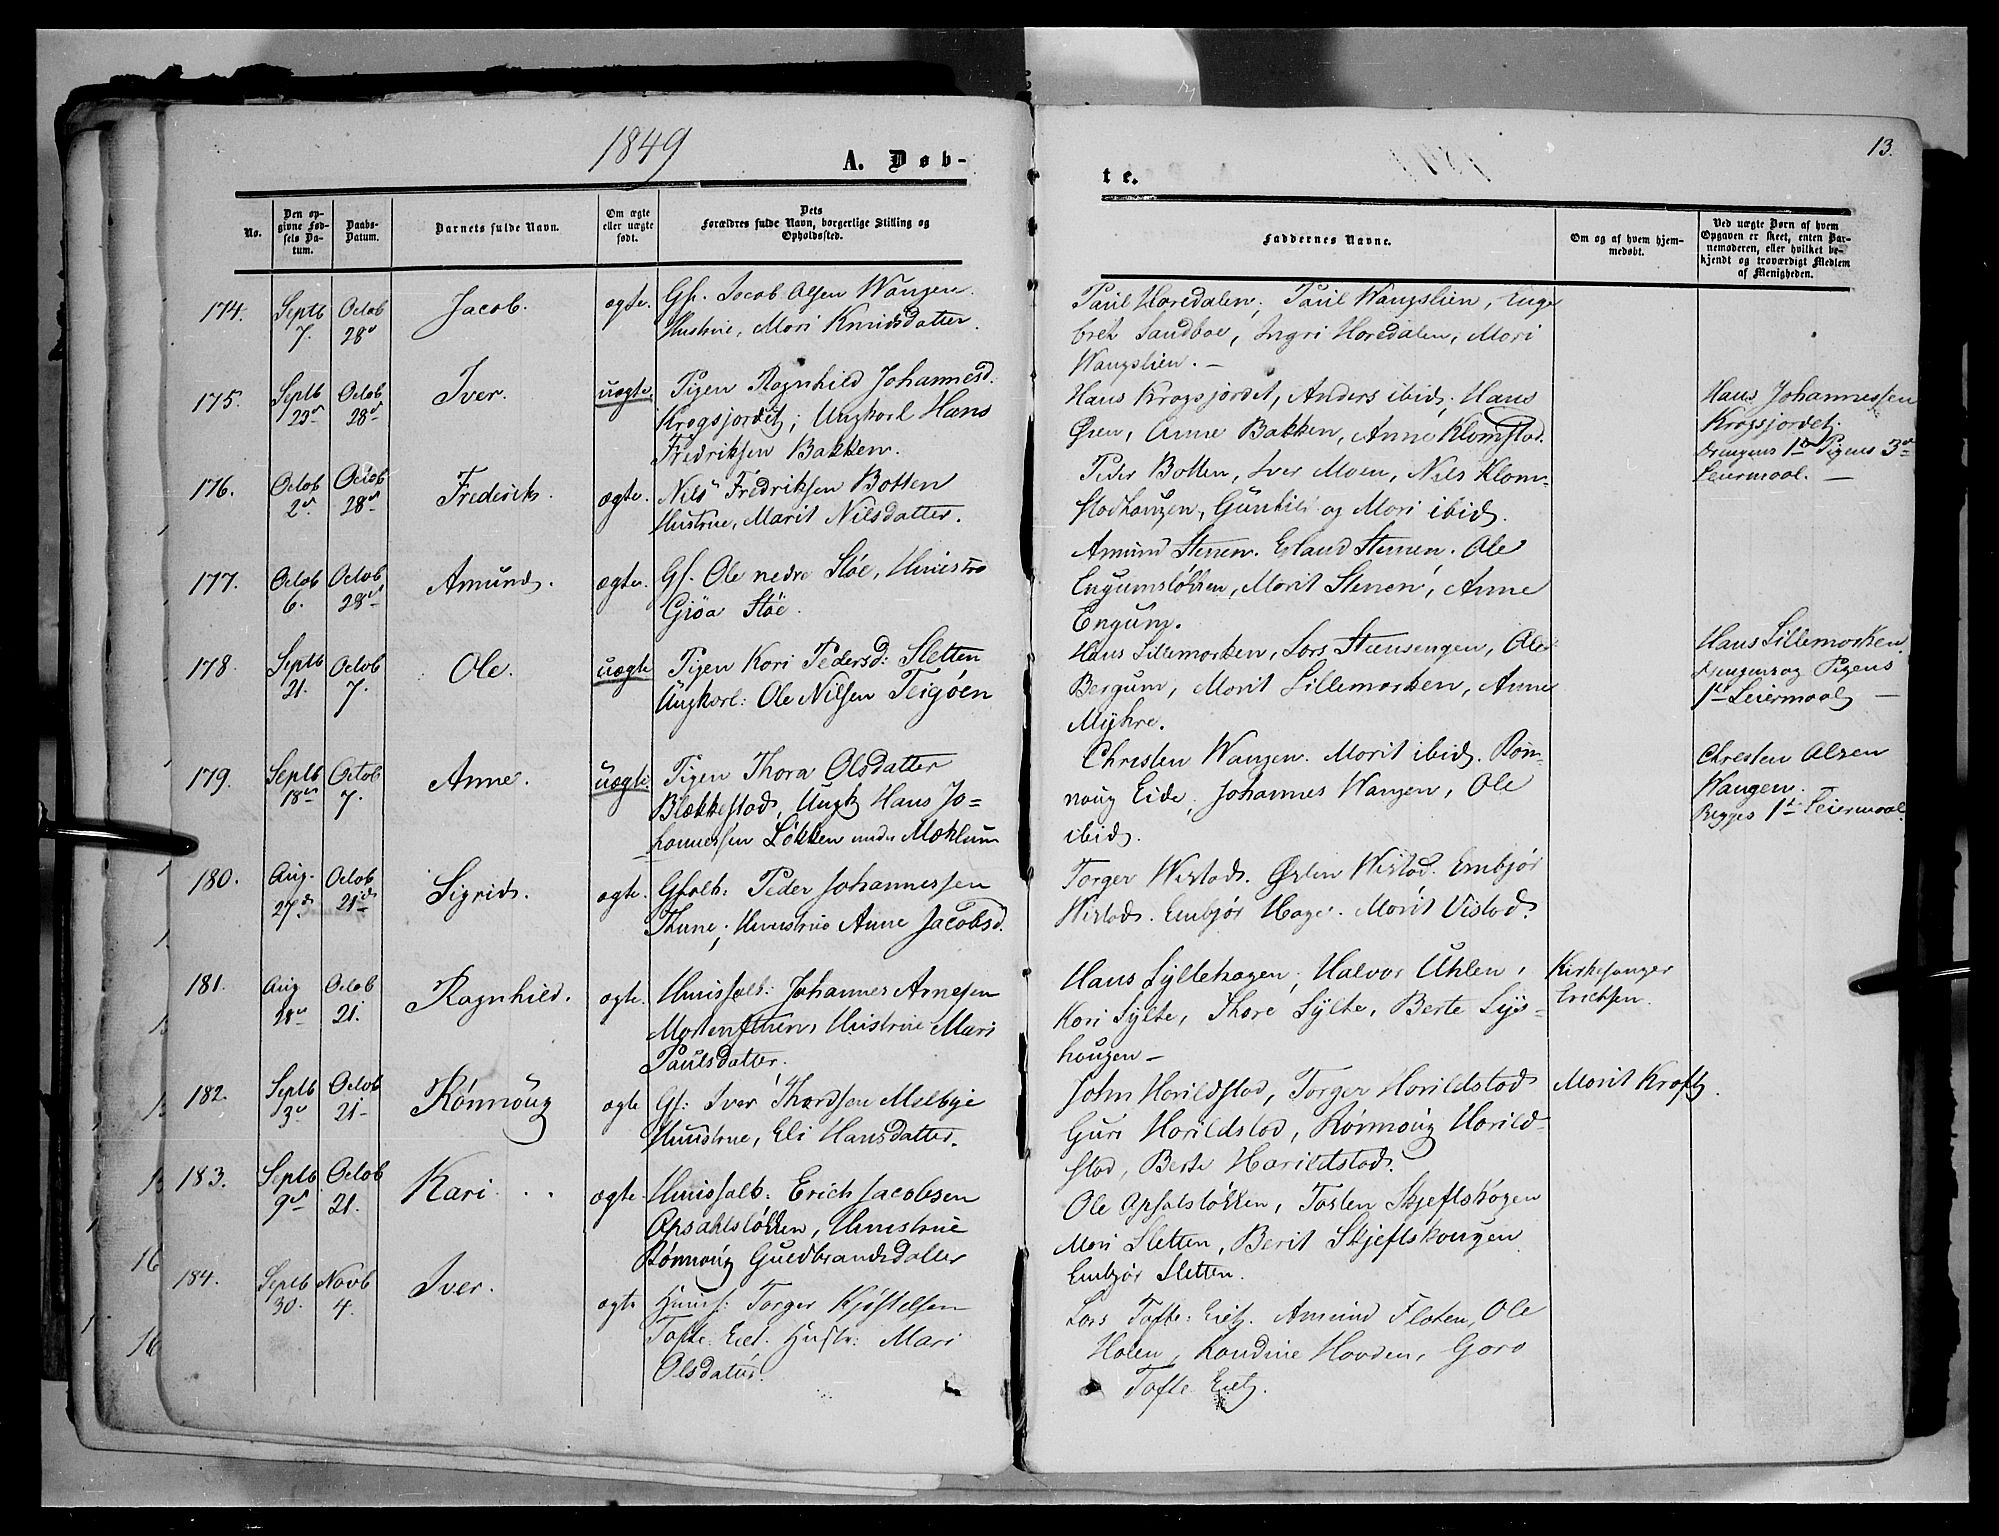 1849
A. Døb-
te.
13.
No.
Den op-
givne Fød-
sels Da-
tum.
Daabs-
Datum.
Barnets fulde Navn.
Om ægte
eller uægte
født.
Dets
Forældres fulde Navn, borgerlige Stilling og
Opholdssted.
Faddernes Navne.
Om og af hvem hjem-
medøbt.
Ved uægte Børn af hvem
Opgaven er skeet, enten Bar-
nemoderen, eller hvilket be-
kjendt og troværdigt Medlem
af Menigheden.
174. Septb 7. Octob 28de Jacob. ægte. Gf. Jacob Olsen Wangen
Hustrue, Mari Knudsdatter.
Paul Horedalen, Paul Wangslien, Enge
bret Sandboe, Ingri Horedalen, Mari
Wangslien. —
175. Septb Octob 28de Iver. uægte. Pigen Ragnhild Johannesd.
Krogsjordet; Ungkarl Hans
Fredriksen Bakken.
Hans Krogsjordet, Anders ibid, Hans
Øien, Anne Bakken, Anne Klomstad.
Hans Johannessen
Krogsjordet.
Drengens 1ste Pigens 3die
Leiermaal. —
176. Octob 2den Octob 28de Frederik. ægte. Nils Fredriksen Botten
Hustrue, Marit Nilsdatter.
Peder Botten, Iver Moen, Nils Klom-
stadhaugen, Gunhild og Mari ibid.
177. Octob 6. Octob 28de Amund. ægte. Gf. Ole nedre Støe, Hustro
Groa Støe.
Amund Stenen. Erland Stenen. Ole
Engumsløkken, Marit Stenen, Anne
Engum.
178. Septb 21. Octob 7. Ole. uægte Pigen Kari Pedersd: Sletten
Ungkarl: Ole Nilsen Teigøen
Hans Lillemorken, Lars Steensengen, Ole
Bergum, Marit Lillemorken, Anne
Myhre.
Hans Lillemorken
Drengens og Pigens
1ste Leiermaal —
179. Septb 18de Octob 7. Anne. uægte. Pigen Thora Olsdatter
Blækkestad, Ungk Hans Jo-
hannessen Løkken under Moklum
Christen Wangen. Marit ibid. Røn-
noug Eide, Johannes Wangen, Ole
ibid.
Christen Olsen
Wangen.
Begges 1ste Leiermaal.
180. Aug. 27d Octob 21de Sigrid. ægte. Gfolk: Peder Johannessen
Thune, Hustrue Anne Jacobsd.
Torger Wistad. Østen Wistad. Embjør
Wistad. Embjør Hage. Marit Vistad.
181. Aug 28de Octob 21. Ragnhild. ægte. Huusfolk: Johannes Arnesen
Hustrue Mari
Paulsdatter.
Hans Syltehagen, Halvor Uhlen,
Kari Sylte, Thore Sylte, Berte Lys-
hougen —
Kirkesanger
Erichsen.
182. Septb 3de Octob 21 Rønnoug ægte Gf: Iver Thordsen Melbye
Hustrue, Eli Hansdatter.
John Harildstad, Torger Harildstad
Guri Harildstad, Rønnoug Harild-
stad, Berte Harildstad.
Marit Kraft.
183. Septb 9de Octob 21. Kari. ægte Huusfolk: Erich Jacobsen
Opsahlsløkken, Hustrue
Rønnoug Guedbrandsdatter
Ole Opsalsløkken, Torsten Skjefthougen
Mari Sletten, Berit Skjefthougen
Embjør Sletten.
184. Septb 30. Novb 4. Iver. ægte Huusf: Torger Kjøstelsen
Tofte Eiet. Hustr: Mari
Olsdatter.
Lars Tofte: Eiet. Amund Floten, Ole
Holen, Randine Hovden, Goro
Tofte Eiet.
16
16